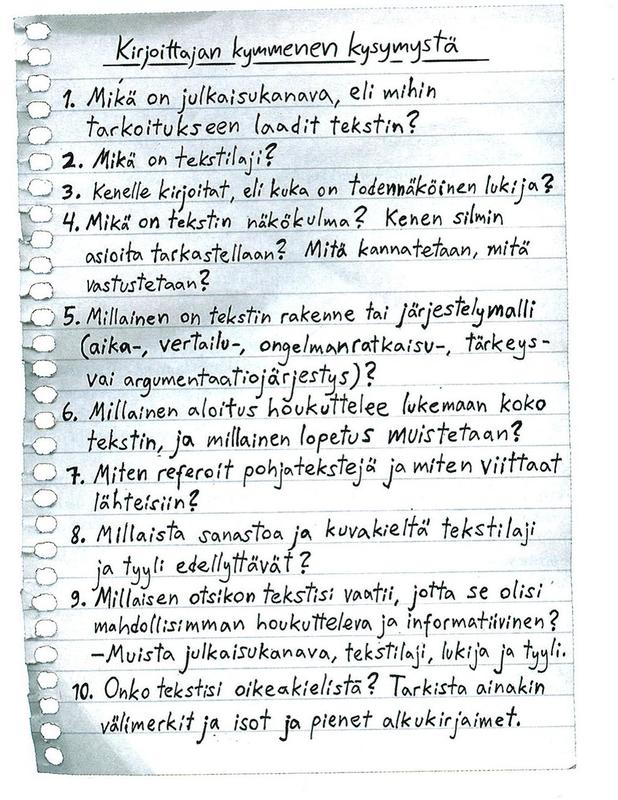 Kirjoittajan kymmenen kysymystä
1. Mikä on julkaisukanava, eli mihin
tarkoitukseen laadit tekstin?
2. Mikä on tekstilaji?
3. Kenelle kirjoitat, eli kuka on todennäköinen lukija?
4. Mikä on tekstin näkökulma? Kenen silmin
asioita tarkastellaan? Mitä kannatetaan, mitä
vastustetaan?
5. Millainen on tekstin rakenne tai järjestelymalli
(aika-, vertailu-, ongelmanratkaisu-, tärkeys-
vai argumentaatiojärjestys)?
6. Millainen aloitus houkuttelee lukemaan koko
tekstin, ja millainen lopetus muistetaan?
7. Miten referoit pohjatekstejä ja miten viittaat
lähteisiin?
8. Millaista sanastoa ja kuvakieltä tekstilaji
ja tyyli edellyttävät?
9. Millaisen otsikon tekstisi vaatii, jotta se olisi
mahdollisimman houkutteleva ja informatiivinen?
-Muista julkaisukanava, tekstilaji, lukija ja tyyli.
10. Onko tekstisi oikeakielistä? Tarkista ainakin
välimerkit ja isot ja pienet alkukirjaimet.